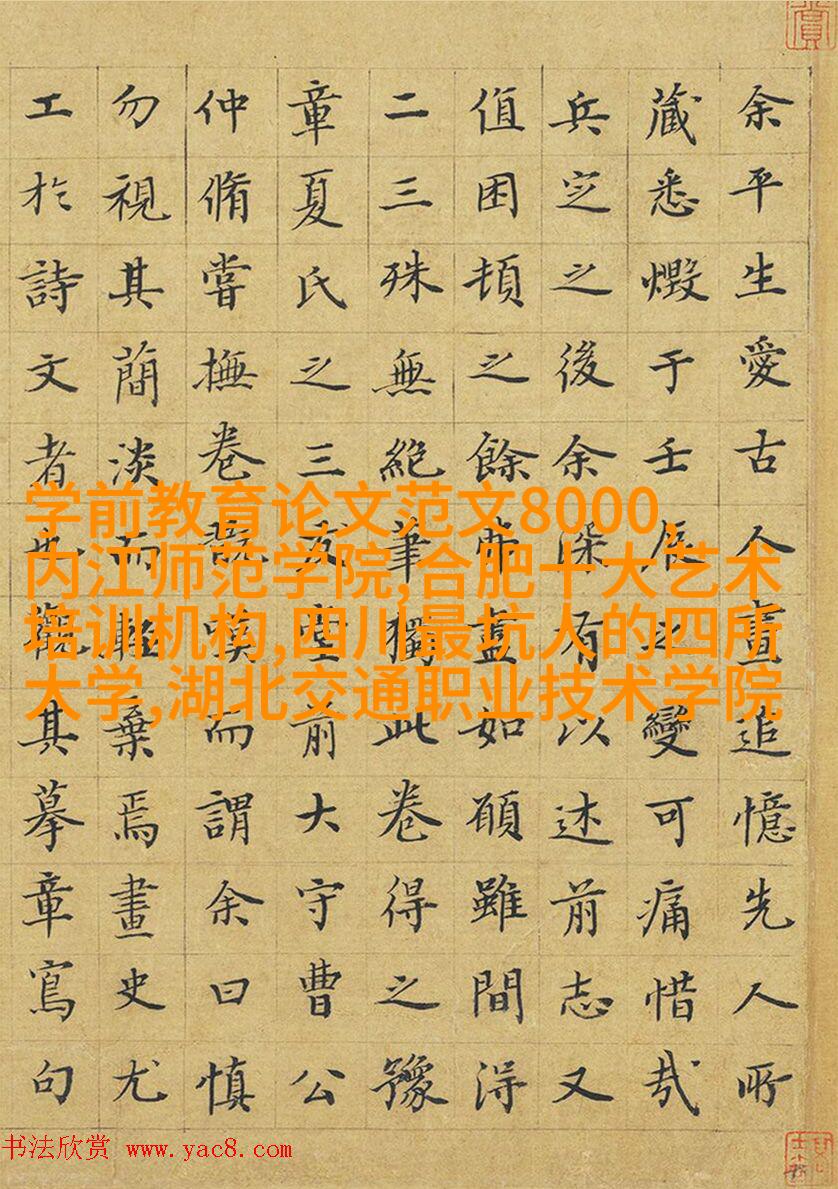 余平生愛古人畫追憶先人所
藏悉燬于壬辰之變可痛惜哉
兵定之後余深有以述前志又
值困頓之餘弗盡如願雖間得
二三殊無絕筆獨此卷得之豫
章夏氏之三友堂前大守曹公
仲脩嘗撫卷嘆而謂余曰慎
勿視其簡淡而輕棄焉畫史尤
工於詩文者也觀其摹章寫句
学前教育论文范文8000,
内江师范学院,合肥十大艺术
培训机构,四川最坑人的四所
大学,湖北交通职业技术学院
书法欣赏 www.yac8.com